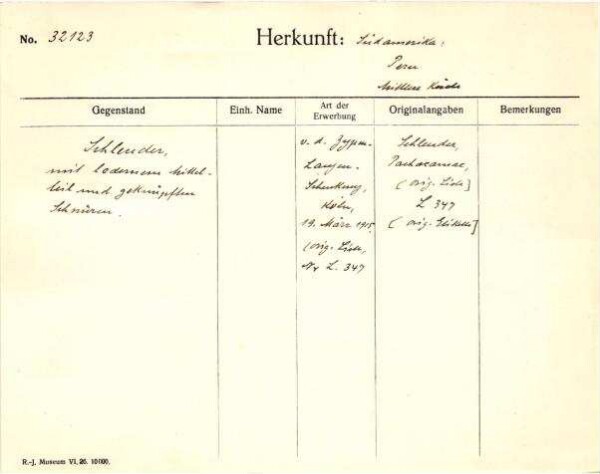 No. 32123
Herkunft: Südamerika:
Peru
Mittlere Küste
Gegenstand
Einh. Name
Art der Erwerbung
Originalangaben
Bemerkungen
Schleuder,
mit ledernem Mittel-
teil und geknüpften
Schnüren.
v. d. Zypen-
Langen.
Schenkung,
Köln,
19. März 1905.
(orig. Liste,
Nr L. 347
Schleuder,
Pachacamac,
(orig. Liste]
L 347
(orig. Etikette]
R.-J. Museum VI. 26. 10000.